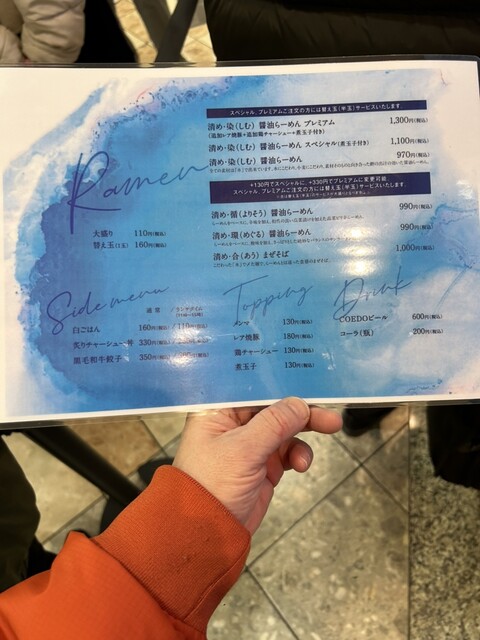 スペシャル、プレミアムご注文の方には替え玉(半玉)サービスいたします。
清め・染(しむ) 醤油らーめん プレミアム 1,300円(税込)
(追加レア焼豚+追加鶏チャーシュー+煮玉子付き)
清め・染(しむ) 醤油らーめん スペシャル(煮玉子付き) 1,100円(税込)
清め・染(しむ) 醤油らーめん 970円(税込)
Ramen
+130円でスペシャルに、+330円でプレミアムに変更可能。
スペシャル、プレミアムご注文の方には替え玉(半玉)サービスいたします。
大盛り 110円(税込)
替え玉(1玉) 160円(税込)
清め・循(よりそう) 醤油らーめん 990円(税込)
清め・環(めぐる) 醤油らーめん 990円(税込)
清め・合(あう) まぜそば 1,000円(税込)
Side menu
通常 / ランチタイム
白ごはん 160円(税込) / 110円(税込)
炙りチャーシュー丼 330円(税込)
黒毛和牛餃子 350円(税込)
Topping
メンマ 130円(税込)
レア焼豚 180円(税込)
鶏チャーシュー 130円(税込)
煮玉子 130円(税込)
Drink
COEDOビール 600円(税込)
コーラ(瓶) 200円(税込)